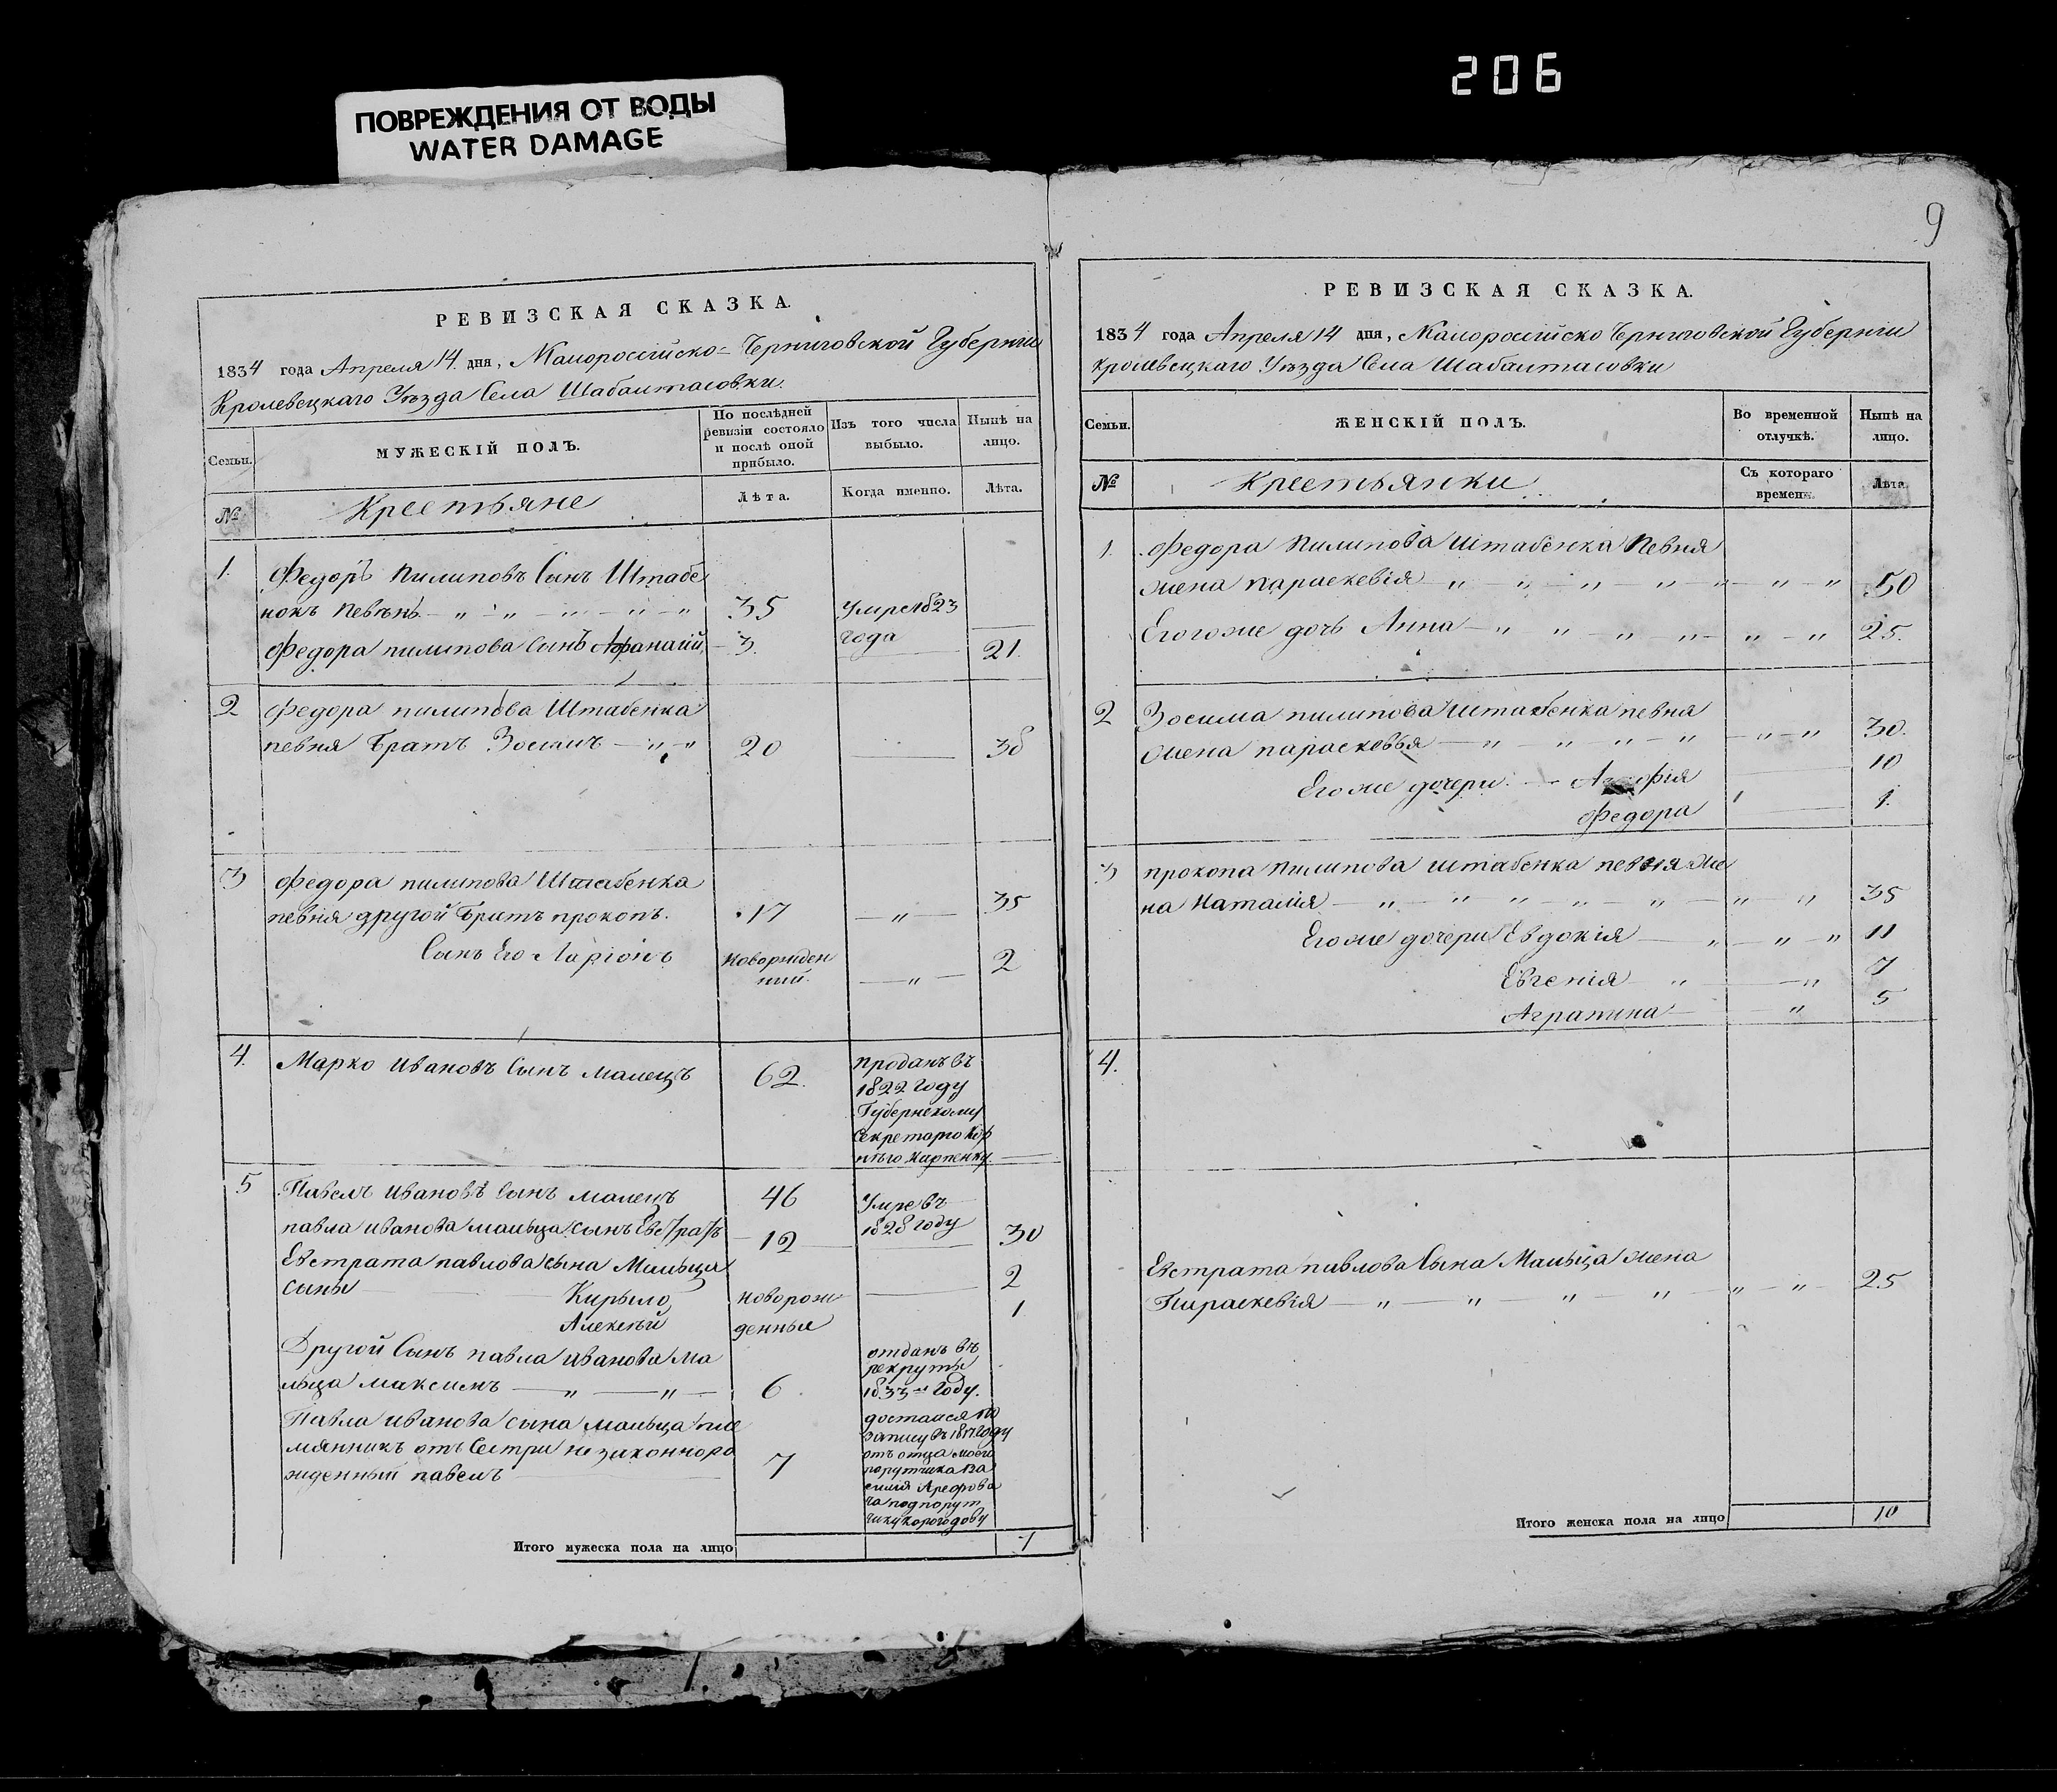 206
ПОВРЕЖДЕНИЯ ОТ ВОДЫ
WATER DAMAGE
РЕВИЗСКАЯ СКАЗКА.
1834 года Апреля 14. дня, Малоросійско=Черниговской Губерніи
Кролевецкаго Уѣзда Села Шабалтасовки.
Семьи.
МУЖЕСКІЙ ПОЛЪ.
По послѣдней ревизіи состояло и послѣ оной прибыло.
Изъ того числа выбыло.
Нынѣ на лицо.
№
Крестьяне
Лѣта.
Когда именно.
Лѣта.
1. Федоръ Пилиповъ Сынъ Штабе
нокъ Певень — „ — „ — „ — „ — „ 35 умре 1823
Федора пилипова Сынъ Афанасій 3. года 21.
2 Федора пилипова Штабенка
певня Братъ Зосимъ — „ — „ 20 — 38
3 Федора пилипова Штабенка
певня другой Братъ прокопъ. 17 — „ — 35
Сынъ Его Ларіонъ новорожден
ный. — „ — 2
4. Марко Ивановъ Сынъ Малецъ 62. проданъ въ
1822 году
Губернскому
Секретарю Кор
нѣю Карпенку.
5 Павелъ Ивановъ Сынъ Малецъ 46 Умре въ
1828 году
павла Иванова мальца Сынъ Евстратъ 12 — 30
Евстрата павлова сына Мальца
сыны — Кирыло новорож — 2
Алексѣй денные 1
Другой Сынъ павла Иванова Ма
льца Максимъ — „ — „ — 6. отданъ въ
рекруты
1833-м Году.
Павла Иванова сына Мальца пле
мянникъ отъ Сестри незаконноро
жденный павелъ 7
достался по
запису въ 1817 году
отъ отца моего
порутчика Ва
силія Арефова
подпорут
чику Корогодову
Итого мужеска пола на лицо 7
9
РЕВИЗСКАЯ СКАЗКА.
1834 года Апреля 14 дня, Малоросійско Черниговской Губерніи
Кролевецкаго Уѣзда Села Шабалтасовки
Семьи.
ЖЕНСКІЙ ПОЛЪ.
Во временной отлучкѣ.
Нынѣ на лицо.
№
Крестьянки
Съ котораго времени.
Лѣта
1. Федора Пилипова Штабенка Певня
жена параскевія — „ — „ — „ — „ — „ — „ — „ 50
Егогоже дочь Анна — „ — „ — „ — „ — „ — „ 25.
2 Зосима пилипова Штабенка певня
жена парасковья — „ — „ — „ — „ — „ — „ 30.
Егоже дочери. — 10
Федора — 1.
3 прокопа Пилипова Штабенка певня же
на Наталія — „ — „ — „ — „ — „ — „ — „ 35
Егоже дочери Евдокія — „ — „ — „ 11
Евгенія „ — „ 7
Аграпина — „ 5
4.
Евстрата павлова Сына Мальца жена
Параскевія — „ — „ — „ — „ — „ — „ 25
Итого женска пола на лицо 10